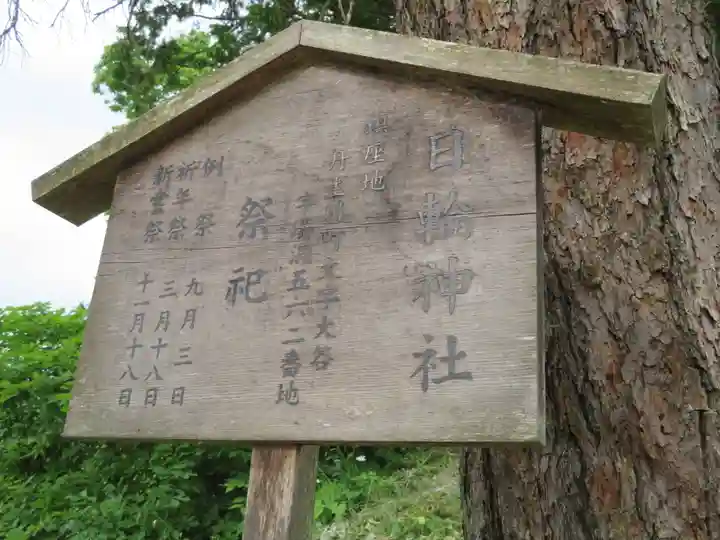 日輪神社
鎮座地
丹生川町大字大谷
字 洞五六二番地
祭祀
例祭 九月三日
祈年祭 三月十八日
新嘗祭 十一月十八日